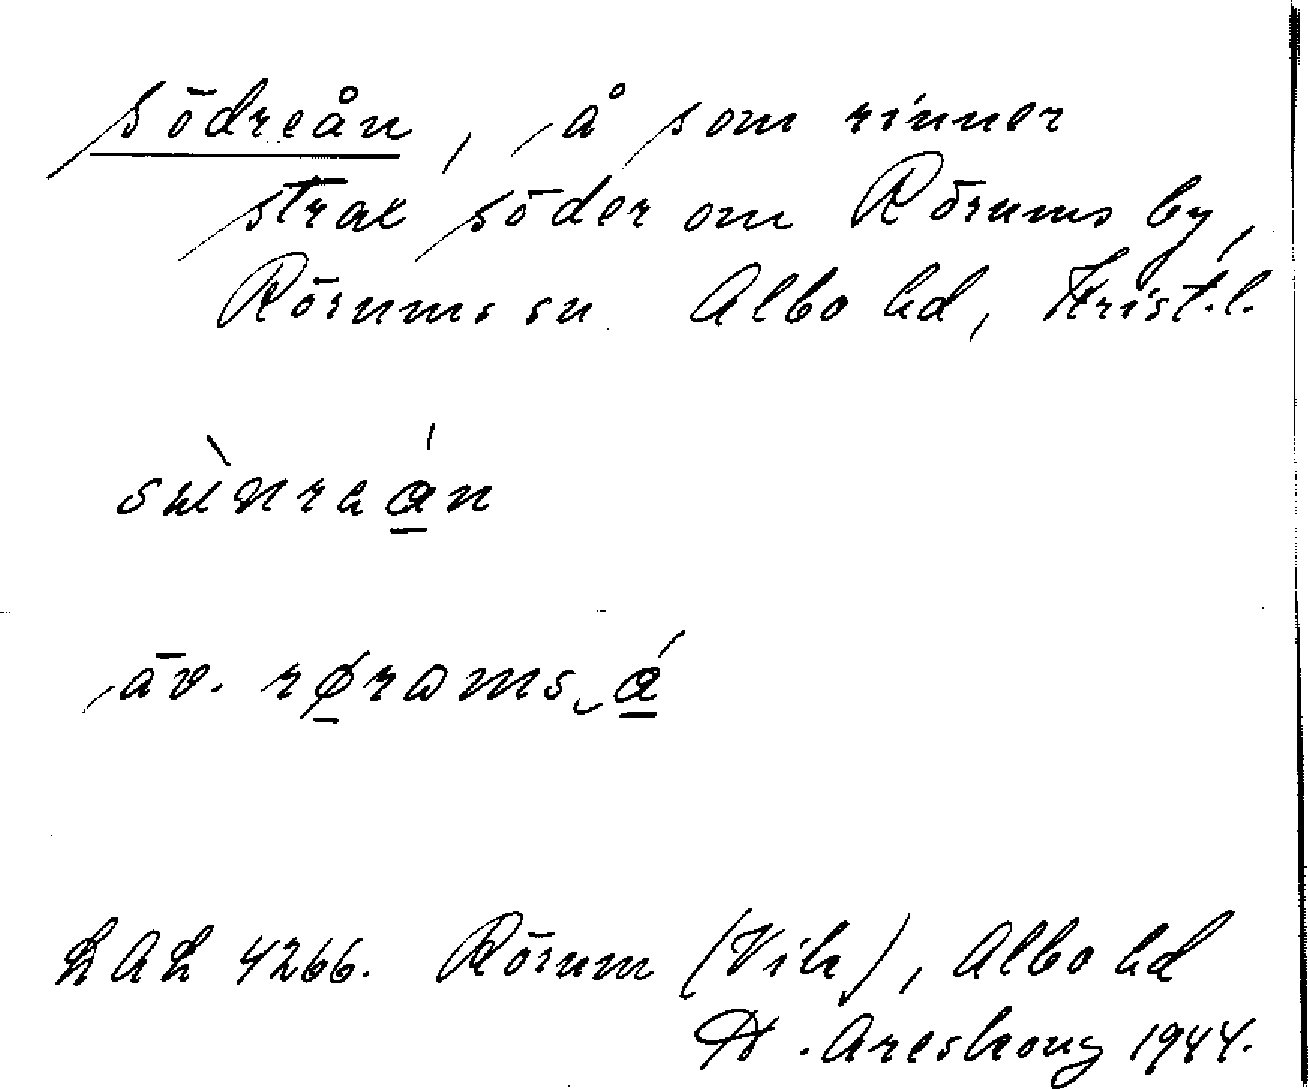 södreån, å som rinner
strax söder om Rörums by,
Rörums sn Albo hd, Krist.l.
äv.
LAL 4266. Rörum (Vik), Albo hd
H. Areskoug 1944.